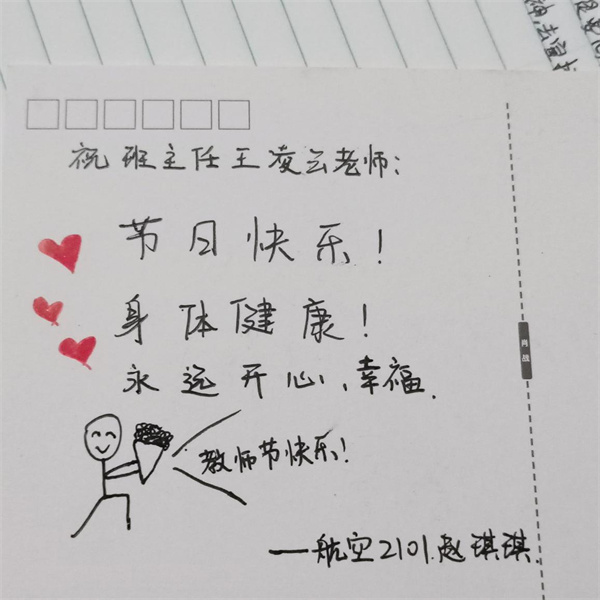 祝班主任王凌云老师:
节日快乐!
身体健康!
永远开心、幸福.
教师节快乐!
——航空2101.赵琪琪.
肖战